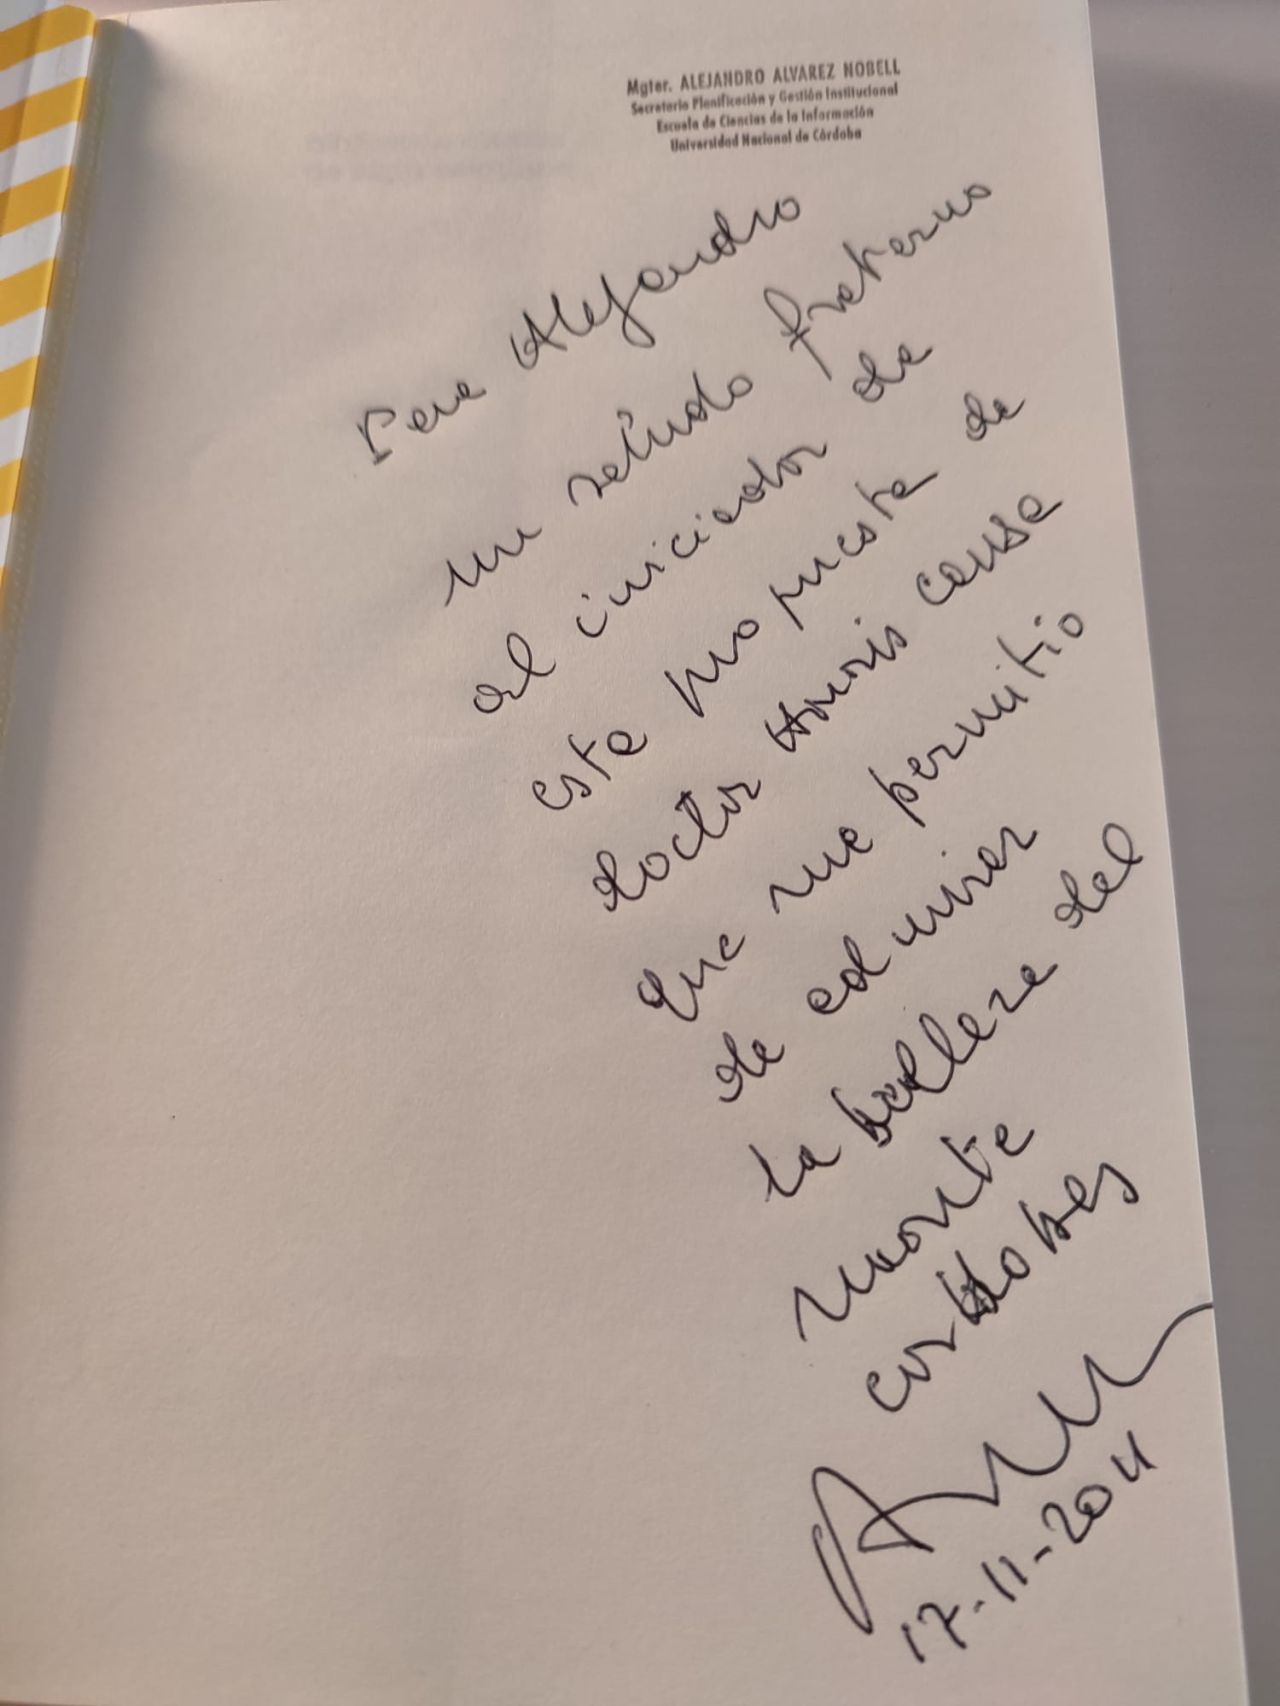 Mgter. ALEJANDRO ALVAREZ NOBELL
Secretario Planificación y Gestión Institucional
Escuela de Ciencias de la Información
Universidad Nacional de Córdoba
Para Alejandro
un saludo fraterno
al iniciador de
esta propuesta de
doctor Honoris causa
que me permitio
de admirar
la belleza del
monte
cordobes
17-11-2011